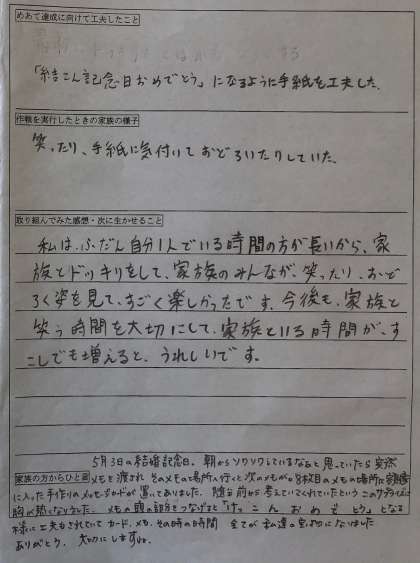 めあて達成に向けて工夫したこと
「結こん記念日おめでとう」になるように手紙を工夫した。
作戦を実行したときの家族の様子
笑ったり、手紙に気付いておどろいたりしていた。
取り組んでみた感想・次に生かせること
私は、ふだん自分1人でいる時間の方が長いから、家
族とドッキリをして、家族のみんなが、笑ったり、おど
ろく姿を見て、すごく楽しかったです。今後も、家族と
笑う時間を大切にして、家族といる時間が、す
こしでも増えると、うれしいです。
5月3日の結婚記念日。朝からソワソワしているなぁと思っていたら突然
家族の方からひと言
メモを渡され そのメモの場所へ行くと次のメモが。8枚目のメモの場所に
に入った手作りのメッセージカードが置いてありました。随分前から考えていてくれていたという このサプライズに
胸が熱くなりました。メモの頭の部分をつなげると「けっこん おめでとう」となる
様に工夫もされていて カード、メモ、その時の時間 全てが私達の宝物になりました
ありがとう。大切にしますね。